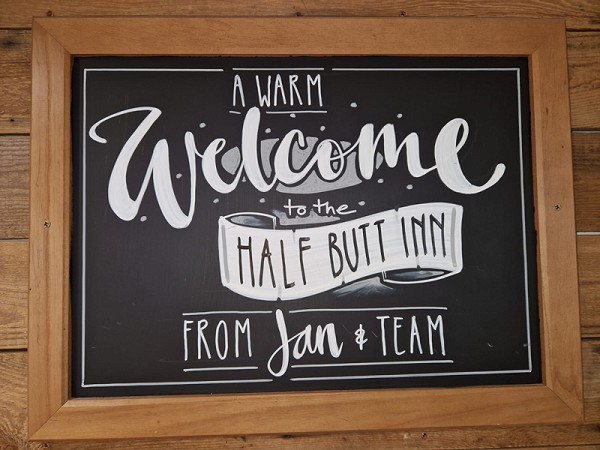 A WARM
Welcome
to the
HALF BUTT INN
FROM Jan & TEAM